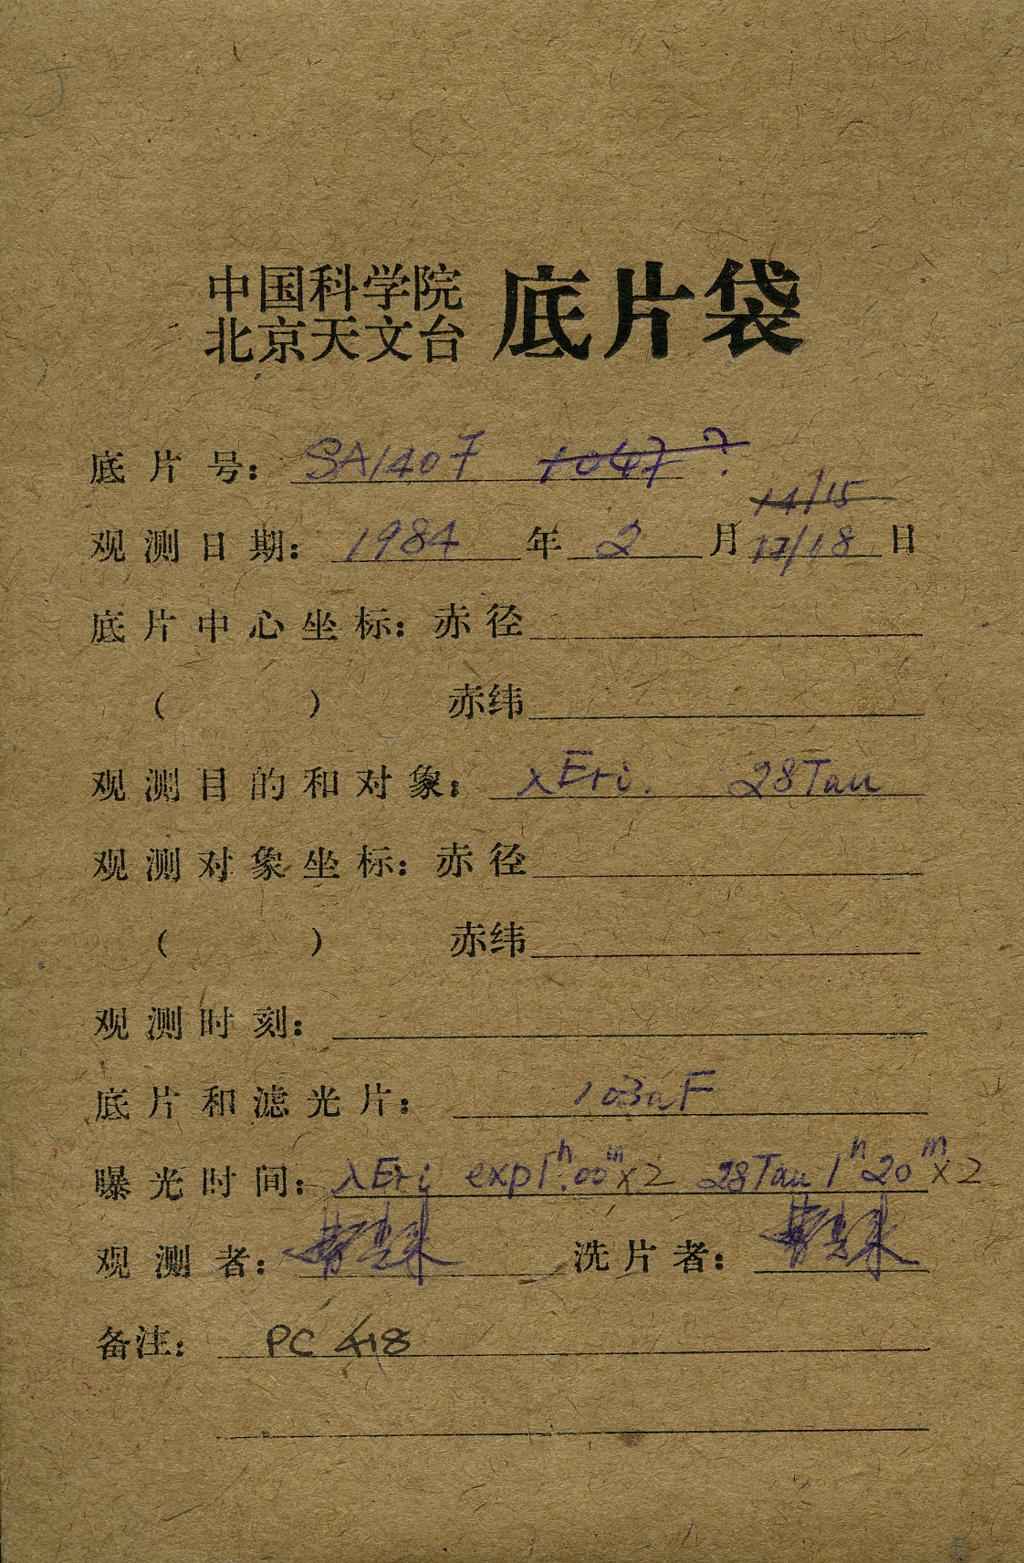 中国科学院
北京天文台 底片袋
底片号: SA1407 1047?
14/15
观测日期: 1984 年 2 月 17/18 日
底片中心坐标: 赤径
( ) 赤纬
观测目的和对象: λEri. 28Tau
观测对象坐标: 赤径
( ) 赤纬
观测时刻:
底片和滤光片: 103aF
曝光时间: λEri exp1h.00m×2 28Tau 1h20m×2
观测者: 洗片者:
备注: PC 418